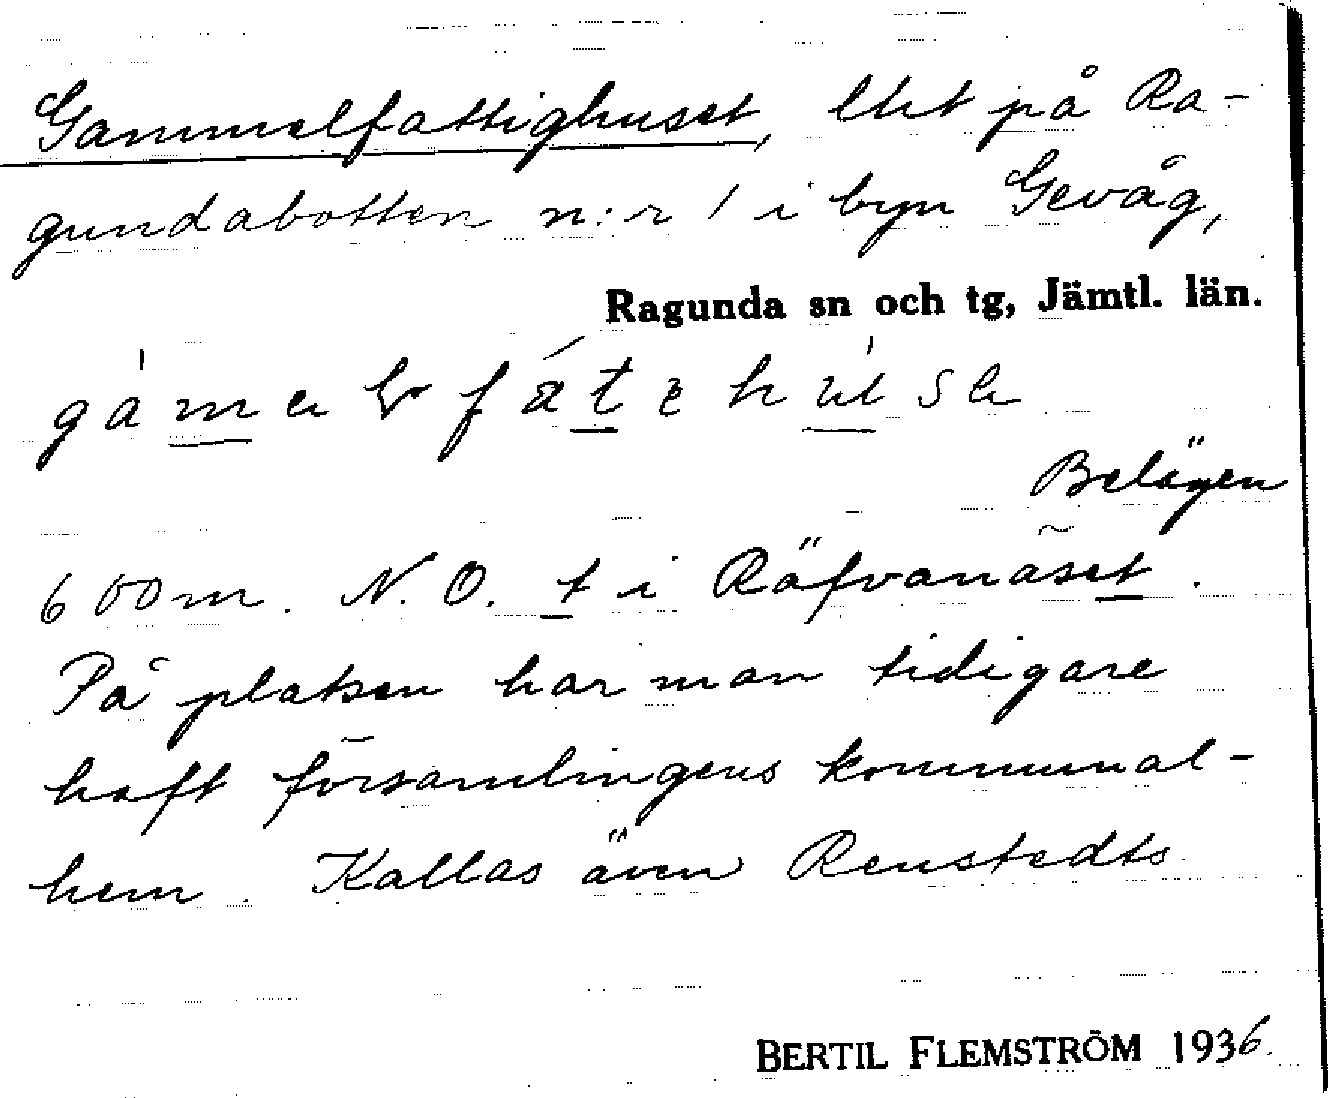 Gammelfattighuset, lht på Ra-
gundabotten n:r 1 i byn Gevåg,
Ragunda sn och tg, Jämtl. län.
Belägen
600 m. N. O. t i Räfvanäset.
På platsen har man tidigare
haft församlingens kommunal-
hem. Kallas även Renstedts
BERTIL FLEMSTRÖM 1936.